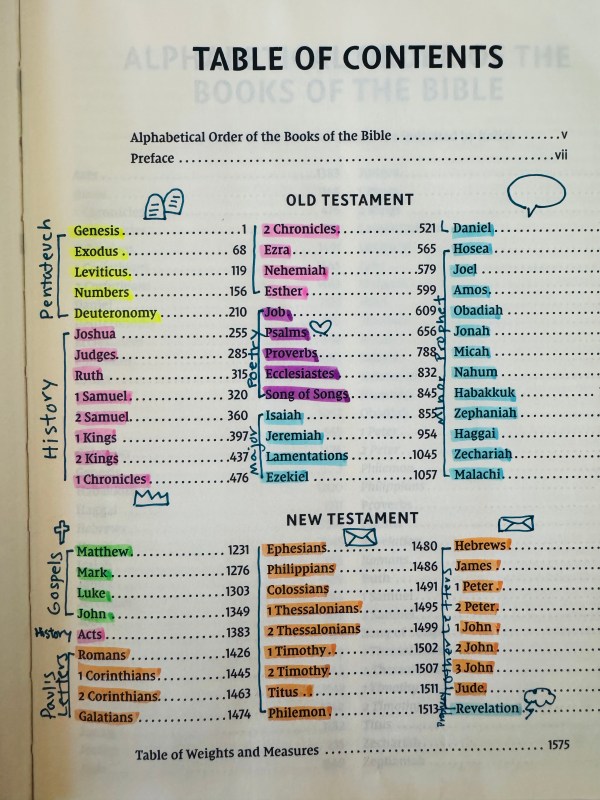 TABLE OF CONTENTS
Alphabetical Order of the Books of the Bible ........ v
Preface ........ vii
OLD TESTAMENT
Pentateuch
Genesis ........ 1
Exodus ........ 68
Leviticus ........ 119
Numbers ........ 156
Deuteronomy ........ 210
History
Joshua ........ 255
Judges ........ 285
Ruth ........ 315
1 Samuel ........ 320
2 Samuel ........ 360
1 Kings ........ 397
2 Kings ........ 437
1 Chronicles ........ 476
2 Chronicles ........ 521
Ezra ........ 565
Nehemiah ........ 579
Esther ........ 599
Poetry
Job ........ 609
Psalms ........ 656
Proverbs ........ 788
Ecclesiastes ........ 832
Song of Songs ........ 845
Major
Isaiah ........ 855
Jeremiah ........ 954
Lamentations ........ 1045
Ezekiel ........ 1057
Daniel ........
Minor Prophet
Hosea ........
Joel ........
Amos ........
Obadiah ........
Jonah ........
Micah ........
Nahum ........
Habakkuk ........
Zephaniah ........
Haggai ........
Zechariah ........
Malachi ........
NEW TESTAMENT
Gospels
Matthew ........ 1231
Mark ........ 1276
Luke ........ 1303
John ........ 1349
History
Acts ........ 1383
Paul's
Letters
Romans ........ 1426
1 Corinthians ........ 1445
2 Corinthians ........ 1463
Galatians ........ 1474
Ephesians ........ 1480
Philippians ........ 1486
Colossians ........ 1491
1 Thessalonians ........ 1495
2 Thessalonians ........ 1499
1 Timothy ........ 1502
2 Timothy ........ 1507
Titus ........ 1511
Philemon ........ 1513
Other Letters
Hebrews ........
James ........
1 Peter ........
2 Peter ........
1 John ........
2 John ........
3 John ........
Jude ........
Revelation ........
Table of Weights and Measures ........ 1575